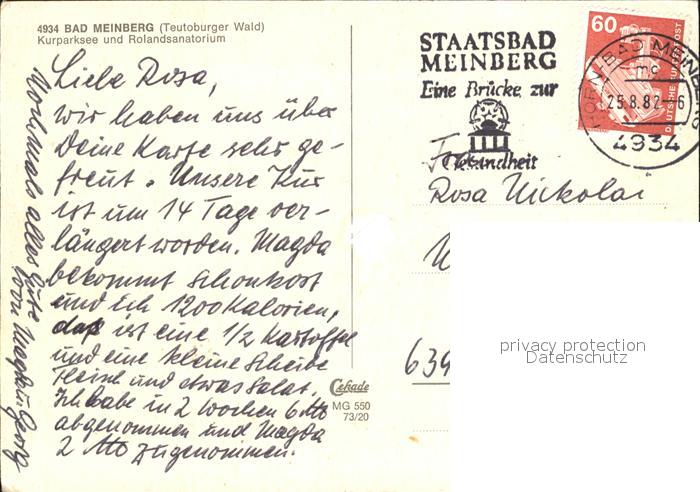 4934 BAD MEINBERG (Teutoburger Wald)
Kurparksee und Rolandsanatorium
Liebe Rosa,
wir haben uns über
Deine Karte sehr ge-
freut. Unsere Kur
ist um 14 Tage ver-
längert worden. Magda
bekommt Schonkost
und ich 1200 Kalorien,
daß ist eine 1/2 Kartoffel
und eine kleine Scheibe
Fleisch und etwas Salat.
Ich habe in 2 Wochen 6
abgenommen und Magda
2 zugenommen.
Nochmals alles Gute
von Magda u. Georg
Cekade
MG 550
73/20
STAATSBAD
MEINBERG
Eine Brücke zur
Gesundheit
60
DEUTSCHE BUNDESPOST
HORN-BAD MEINBERG
mc
25.8.82-6
4934
Frau
Rosa Nickolai
639
privacy protection
Datenschutz